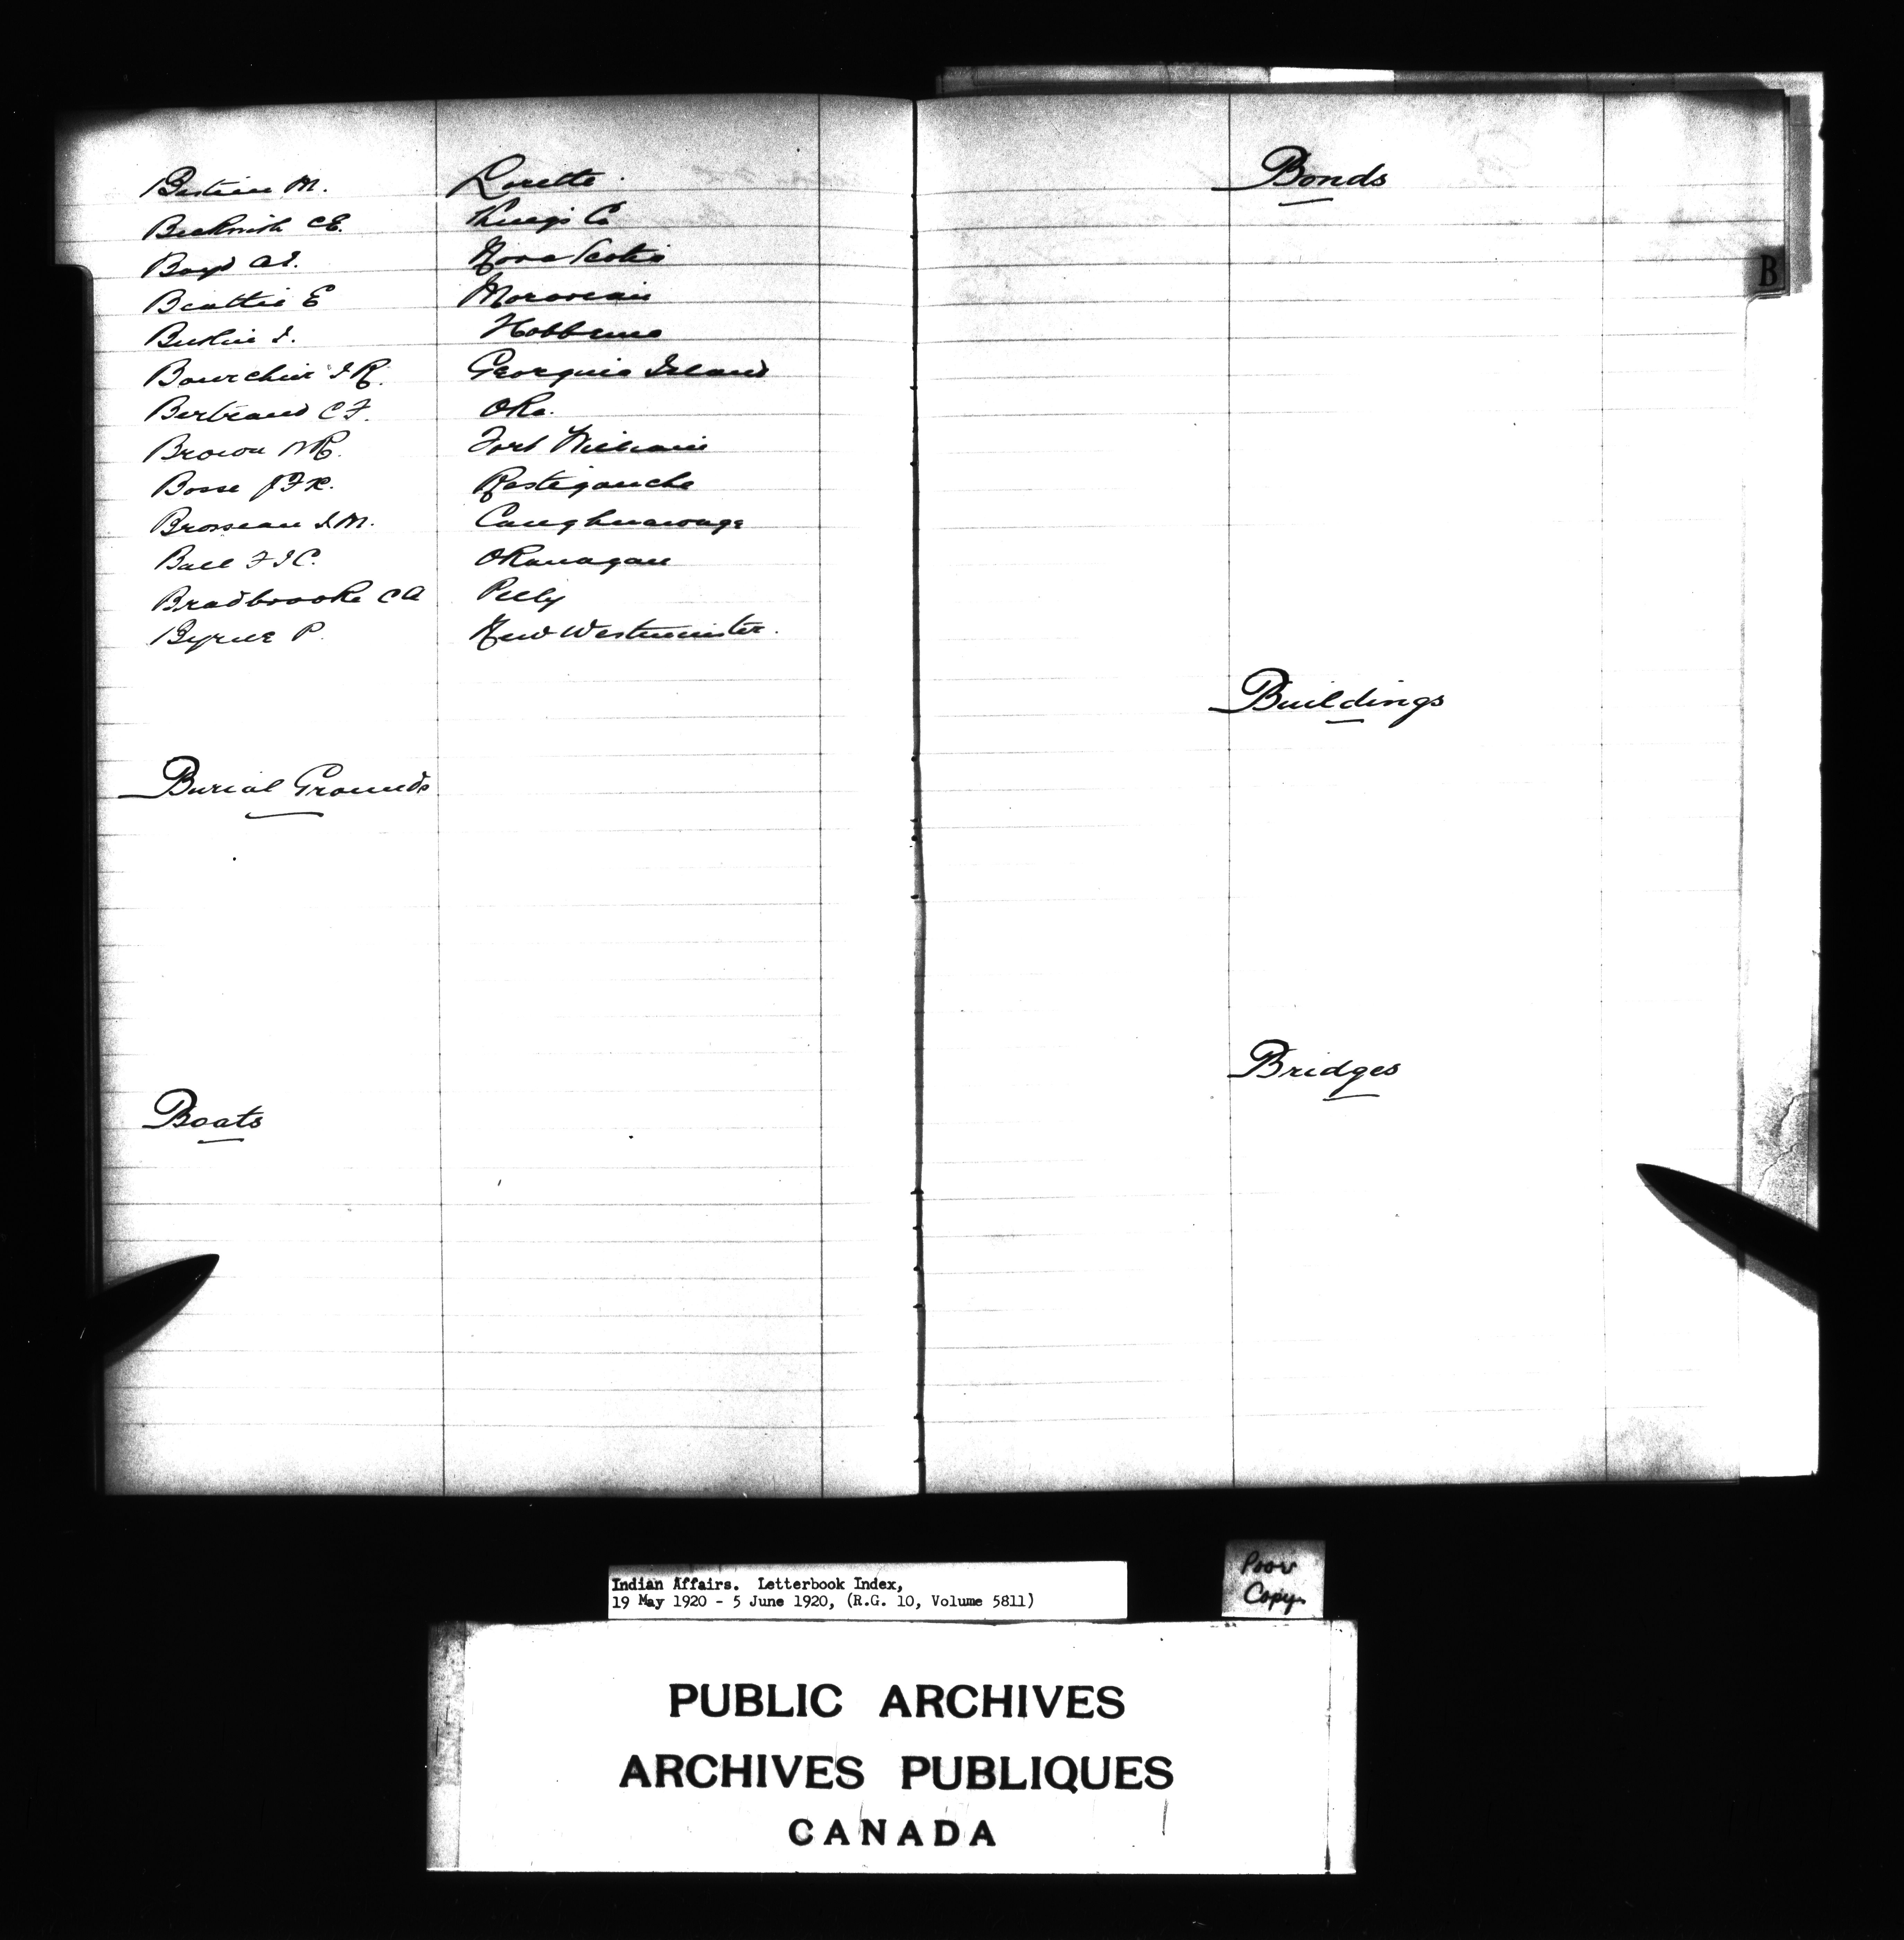 Bastien M. Lorette.
Beckwith CE. Kings Co
Boyd AJ. Nova Scotia
Beattie E Moravian
J. Hobbema
Bourchier J R. Georgina Island
Bertrand C F. Oka.
Brown W R. Fort William
Bosse J F X. Restigouche
Brosseau J M. Caughnawaga
Ball F J C. Okanagan
Bradbrooke C A Pelly
Byrne P. New Westminster.
Burial Grounds
Boats
Bonds
B
Buildings
Bridges
Indian Affairs. Letterbook Index,
19 May 1920 - 5 June 1920, (R.G. 10, Volume 5811)
Poor
Copy
PUBLIC ARCHIVES
ARCHIVES PUBLIQUES
CANADA